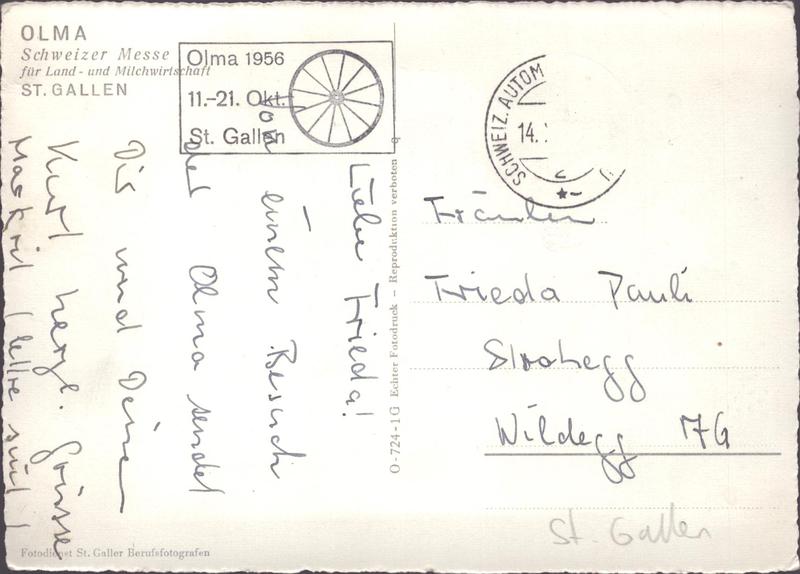 OLMA
Schweizer Messe
für Land- und Milchwirtschaft
ST. GALLEN
Olma 1956
11.-21. Okt.
St. Gallen
SCHWEIZ. AUTOM
14.
Liebe Frieda!
Von einem Besuch
der Olma sendet
Dir und Deinem
Kurt herzl. Grüsse
O-724-1G Echter Fotodruck – Reproduktion verboten
Fräulein
Frieda Pauli
Strohegg
Wildegg AG
St. Gallen
Fotodienst St. Galler Berufsfotografen